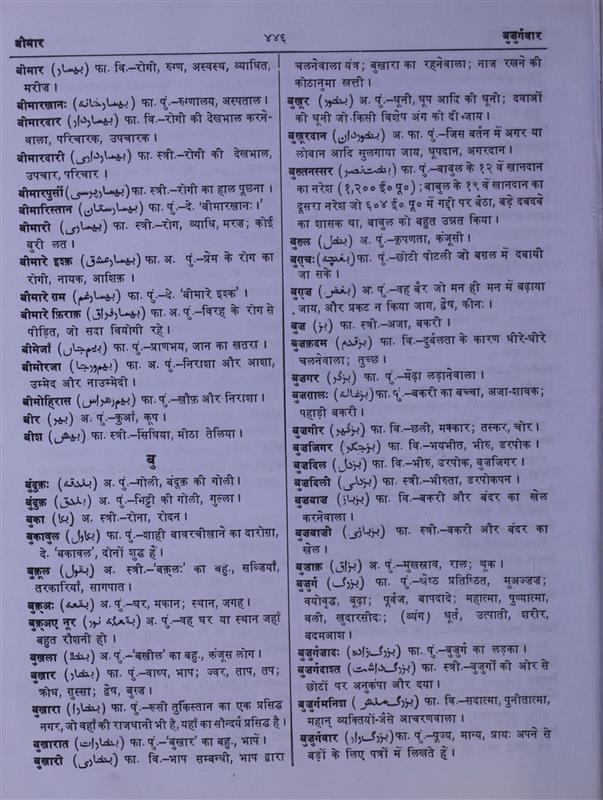 बीमार
४४६
बुज़ुर्गवार
बीमार (بیمار) फा. वि.–रोगी, रुग्ण, अस्वस्थ, व्याधित,
मरीज़।
बीमारखानः (بیمارخانہ) फा. पुं.–रुग्णालय, अस्पताल।
बीमारदार (بیماردار) फा. वि.–रोगी की देखभाल करने-
वाला, परिचारक, उपचारक।
बीमारदारी (بیمارداری) फा. स्त्री.–रोगी की देखभाल,
उपचार, परिचार।
बीमारपुर्सी (بیمارپرسی) फा. स्त्री.–रोगी का हाल पूछना।
बीमारिस्तान (بیمارستان) फा. पुं.–दे. 'बीमारखानः।'
बीमारी (بیماری) फा. स्त्री.–रोग, व्याधि, मरज़; कोई
बुरी लत।
बीमारे इश्क़ (بیمارعشق) फा. अ. पुं.–प्रेम के रोग का
रोगी, नायक, आशिक़।
बीमारे ग़म (بیمارغم) फा. पुं.–दे. 'बीमारे इश्क़'।
बीमारे फ़िराक़ (بیمارفراق) फा. अ. पुं.–विरह के रोग से
पीड़ित, जो सदा वियोगी रहे।
बीमेजाँ (بیم جاں) फा. पुं.–प्राणभय, जान का खतरा।
बीमोरजा (بیم ورجا) फा. अ. पुं.–निराशा और आशा,
उम्मेद और नाउम्मेदी।
बीमोहिरास (بیم وہراس) फा. पुं.–खौफ़ और निराशा।
बीर (بیر) अ. पुं.–कुआँ, कूप।
बीश (بیش) फा. स्त्री.–सिंघिया, मीठा तेलिया।
बु
बुंदुक़ः (بندقہ) अ. पुं.–गोली, बंदूक़ की गोली।
बुंदुक़ (بندق) अ. पुं.–मिट्टी की गोली, गुल्ला।
बुका (بکا) अ. स्त्री.–रोना, रोदन।
बुकावुल (بکاول) फा. पुं.–शाही बावरचीखाने का दारोग़ा,
दे. 'बकावल', दोनों शुद्ध हैं।
बुक़ूल (بقول) अ. स्त्री.–'बक़्लः' का बहु., सब्जियाँ,
तरकारियाँ, सागपात।
बुक़्अः (بقعہ) अ. पुं.–घर, मकान; स्थान, जगह।
बुक़्अए नूर (بقعۂ نور) अ. पुं.–वह घर या स्थान जहाँ
बहुत रौशनी हो।
बुखला (بخلا) अ. पुं.–'बखील' का बहु., कंजूस लोग।
बुखार (بخار) फा. पुं.–वाष्प, भाप; ज्वर, ताप, तप;
क्रोध, गुस्सा; द्वेष, बुग्ज।
बुखारा (بخارا) फा. पुं.–रूसी तुर्किस्तान का एक प्रसिद्ध
नगर, जो वहाँ की राजधानी भी है, यहाँ का सौन्दर्य प्रसिद्ध है।
बुखारात (بخارات) फा. पुं.–'बुखार' का बहु., भापें।
बुखारी (بخاری) फा. वि.–भाप सम्बन्धी, भाप द्वारा
चलनेवाला यंत्र; बुखारा का रहनेवाला; नाज रखने की
कोठानुमा खत्ती।
बुखूर (بخور) अ. पुं.–धूनी, धूप आदि की धूनी; दवाओं
की धूनी जो किसी विशेष अंग को दी जाय।
बुखूरदान (بخوردان) अ. फा.–जिस बर्तन में अगर या
लोबान आदि सुलगाया जाय, धूपदान, अगरदान।
बुख्तनस्सर (بخت نصر) अ. पुं.–बाबुल के १२ वें खानदान
का नरेश (१,२०० ई० पू०); बाबुल के १९ वें खानदान का
दूसरा नरेश जो ६०४ ई० पू० में गद्दी पर बैठा, बड़े दबदबे
का शासक था, बाबुल को बहुत उन्नत किया।
बुख्ल (بخل) अ. पुं.–कृपणता, कंजूसी।
बुग्चः (بغچہ) फा. पुं.–छोटी पोटली जो बग़ल में दबायी
जा सके।
बुग्ज़ (بغض) अ. पुं.–वह बैर जो मन ही मन में बढ़ाया
जाय, और प्रकट न किया जाय, द्वेष, कीनः।
बुज़ (بز) फा. स्त्री.–अजा, बकरी।
बुज़क़दम (بزقدم) फा. वि.–दुर्बलता के कारण धीरे-धीरे
चलनेवाला; तुच्छ।
बुज़गर (بزگر) फा. पुं.–मेंढ़ा लड़ानेवाला।
बुज़ग़ालः (بزغالہ) फा. पुं.–बकरी का बच्चा, अजा-शावक;
पहाड़ी बकरी।
बुज़गीर (بزگیر) फा. वि.–छली, मक्कार; तस्कर, चोर।
बुज़जिगर (بزجگر) फा. वि.–भयभीत, भीरु, डरपोक।
बुज़दिल (بزدل) फा. वि.–भीरु, डरपोक, बुज़जिगर।
बुज़दिली (بزدلی) फा. स्त्री.–भीरुता, डरपोकपन।
बुज़बाज़ (بزباز) फा. वि.–बकरी और बंदर का खेल
करनेवाला।
बुज़बाज़ी (بزبازی) फा. स्त्री.–बकरी और बंदर का
खेल।
बुज़ाक़ (بزاق) अ. पुं.–मुखस्राव, राल; थूक।
बुज़ुर्ग (بزرگ) फा. पुं.–श्रेष्ठ प्रतिष्ठित, मुअज्जज़;
वयोवृद्ध, बूढ़ा; पूर्वज, बापदादे; महात्मा, पुण्यात्मा,
वली, खुदारसीदः; (व्यंग) धूर्त, उत्पाती, शरीर,
बदमआश।
बुज़ुर्गज़ादः (بزرگ زادہ) फा. पुं.–बुज़ुर्ग का लड़का।
बुज़ुर्गदाश्त (بزرگ داشت) फा. स्त्री.–बुज़ुर्गों की ओर से
छोटों पर अनुकंपा और दया।
बुज़ुर्गमनिश (بزرگ منش) फा. वि.–सदात्मा, पुनीतात्मा,
महान् व्यक्तियों-जैसे आचरणवाला।
बुज़ुर्गवार (بزرگوار) फा. पुं.–पूज्य, मान्य, प्रायः अपने से
बड़ों के लिए पत्रों में लिखते हैं।